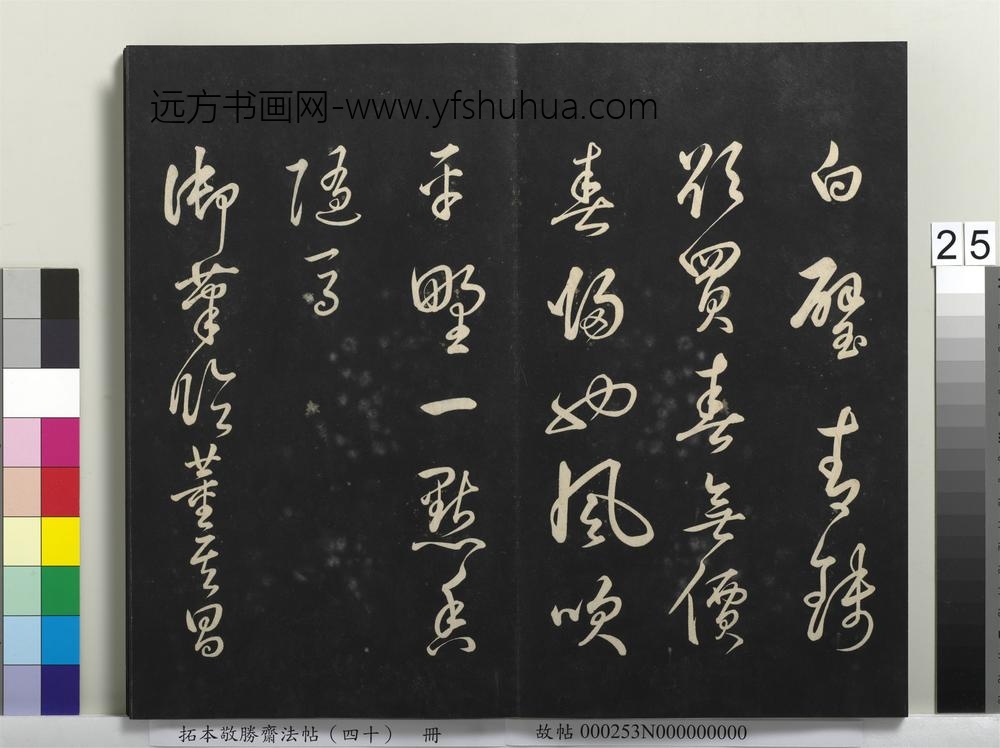 远方书画网-www.yfshuhua.com
白璧青錢
欲買春無價
春歸也風吹
平野一點香
隨馬
御筆臨董其昌
25
拓本敬勝齋法帖（四十） 冊
故帖 000253N000000000